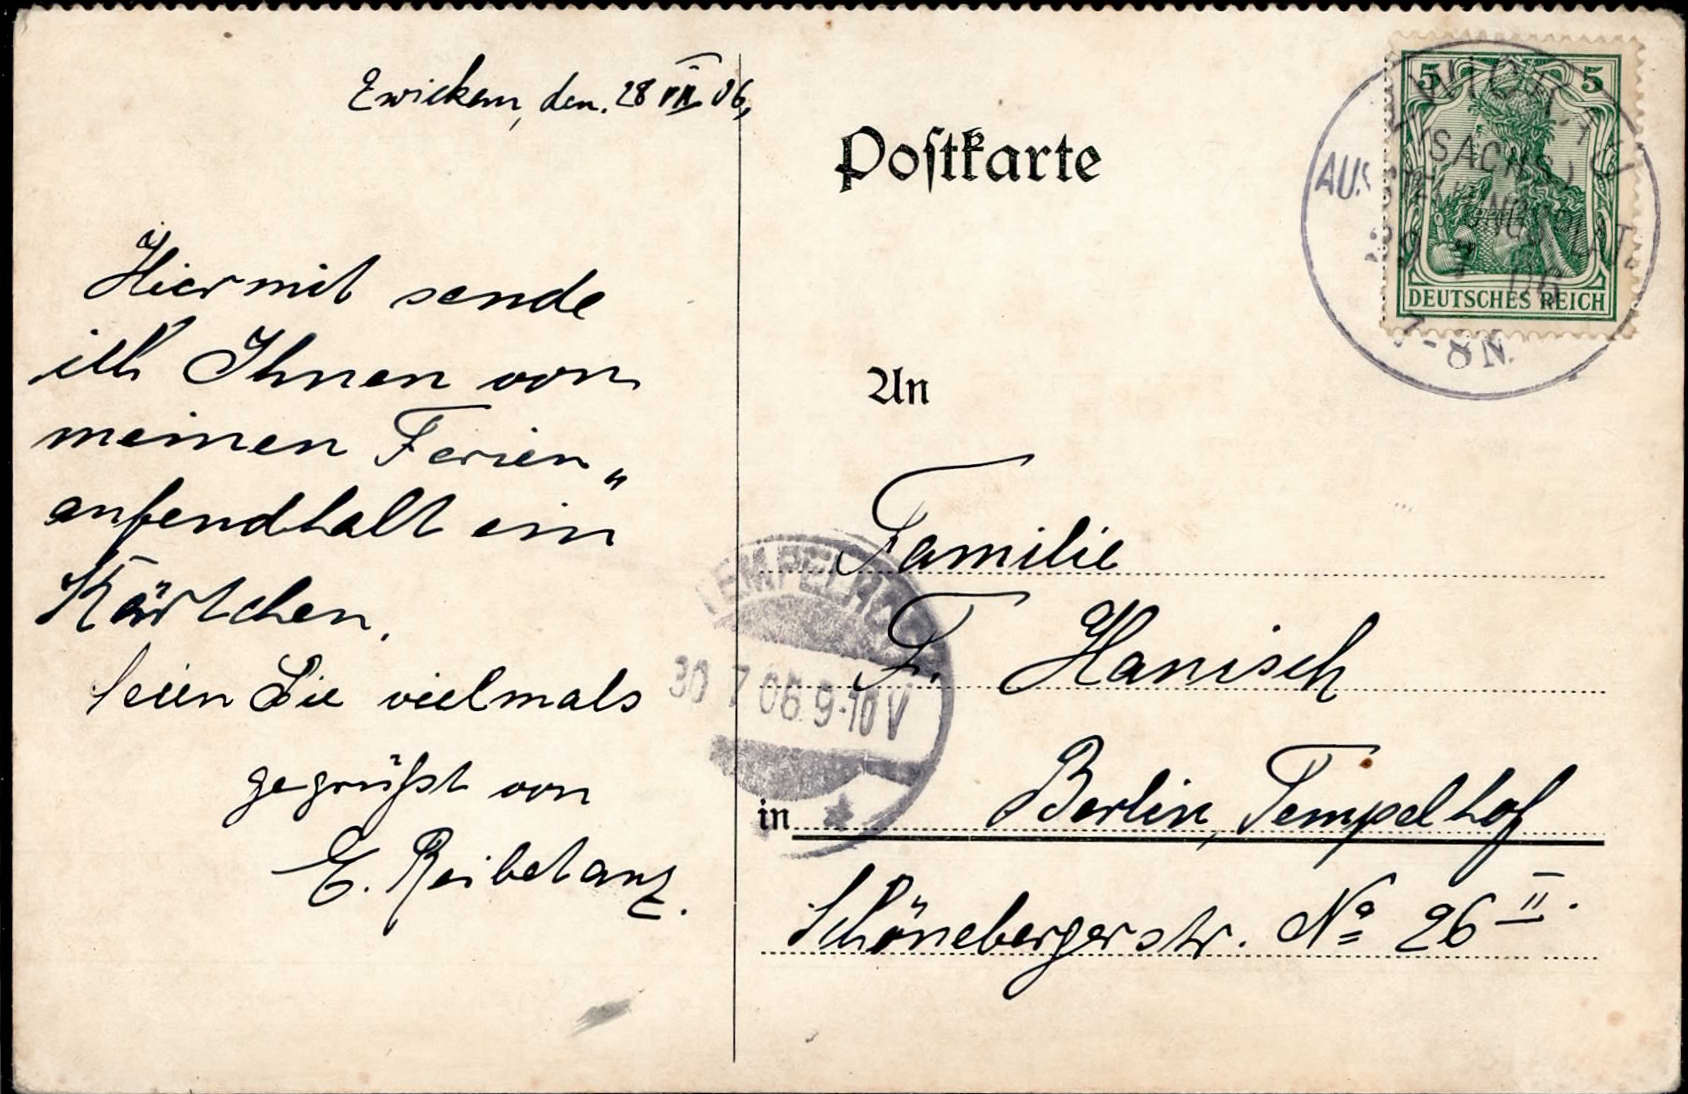 Zwickau, den. 28 VII 06,
Hiermit sende
ich Ihnen von
meinen Ferien„
aufendhalt ein
Kärtchen.
Seien Sie vielmals
gegrüßt von
E. Reibetanz.
Postkarte
5 5
DEUTSCHES REICH
ZWICKAU
(SACHS.)
7-8N.
An
Familie
F. Hanisch
in Berlin, Tempelhof
Schönebergerstr. No 26 II.
TEMPELHOF
30 7 06. 9-10V
*